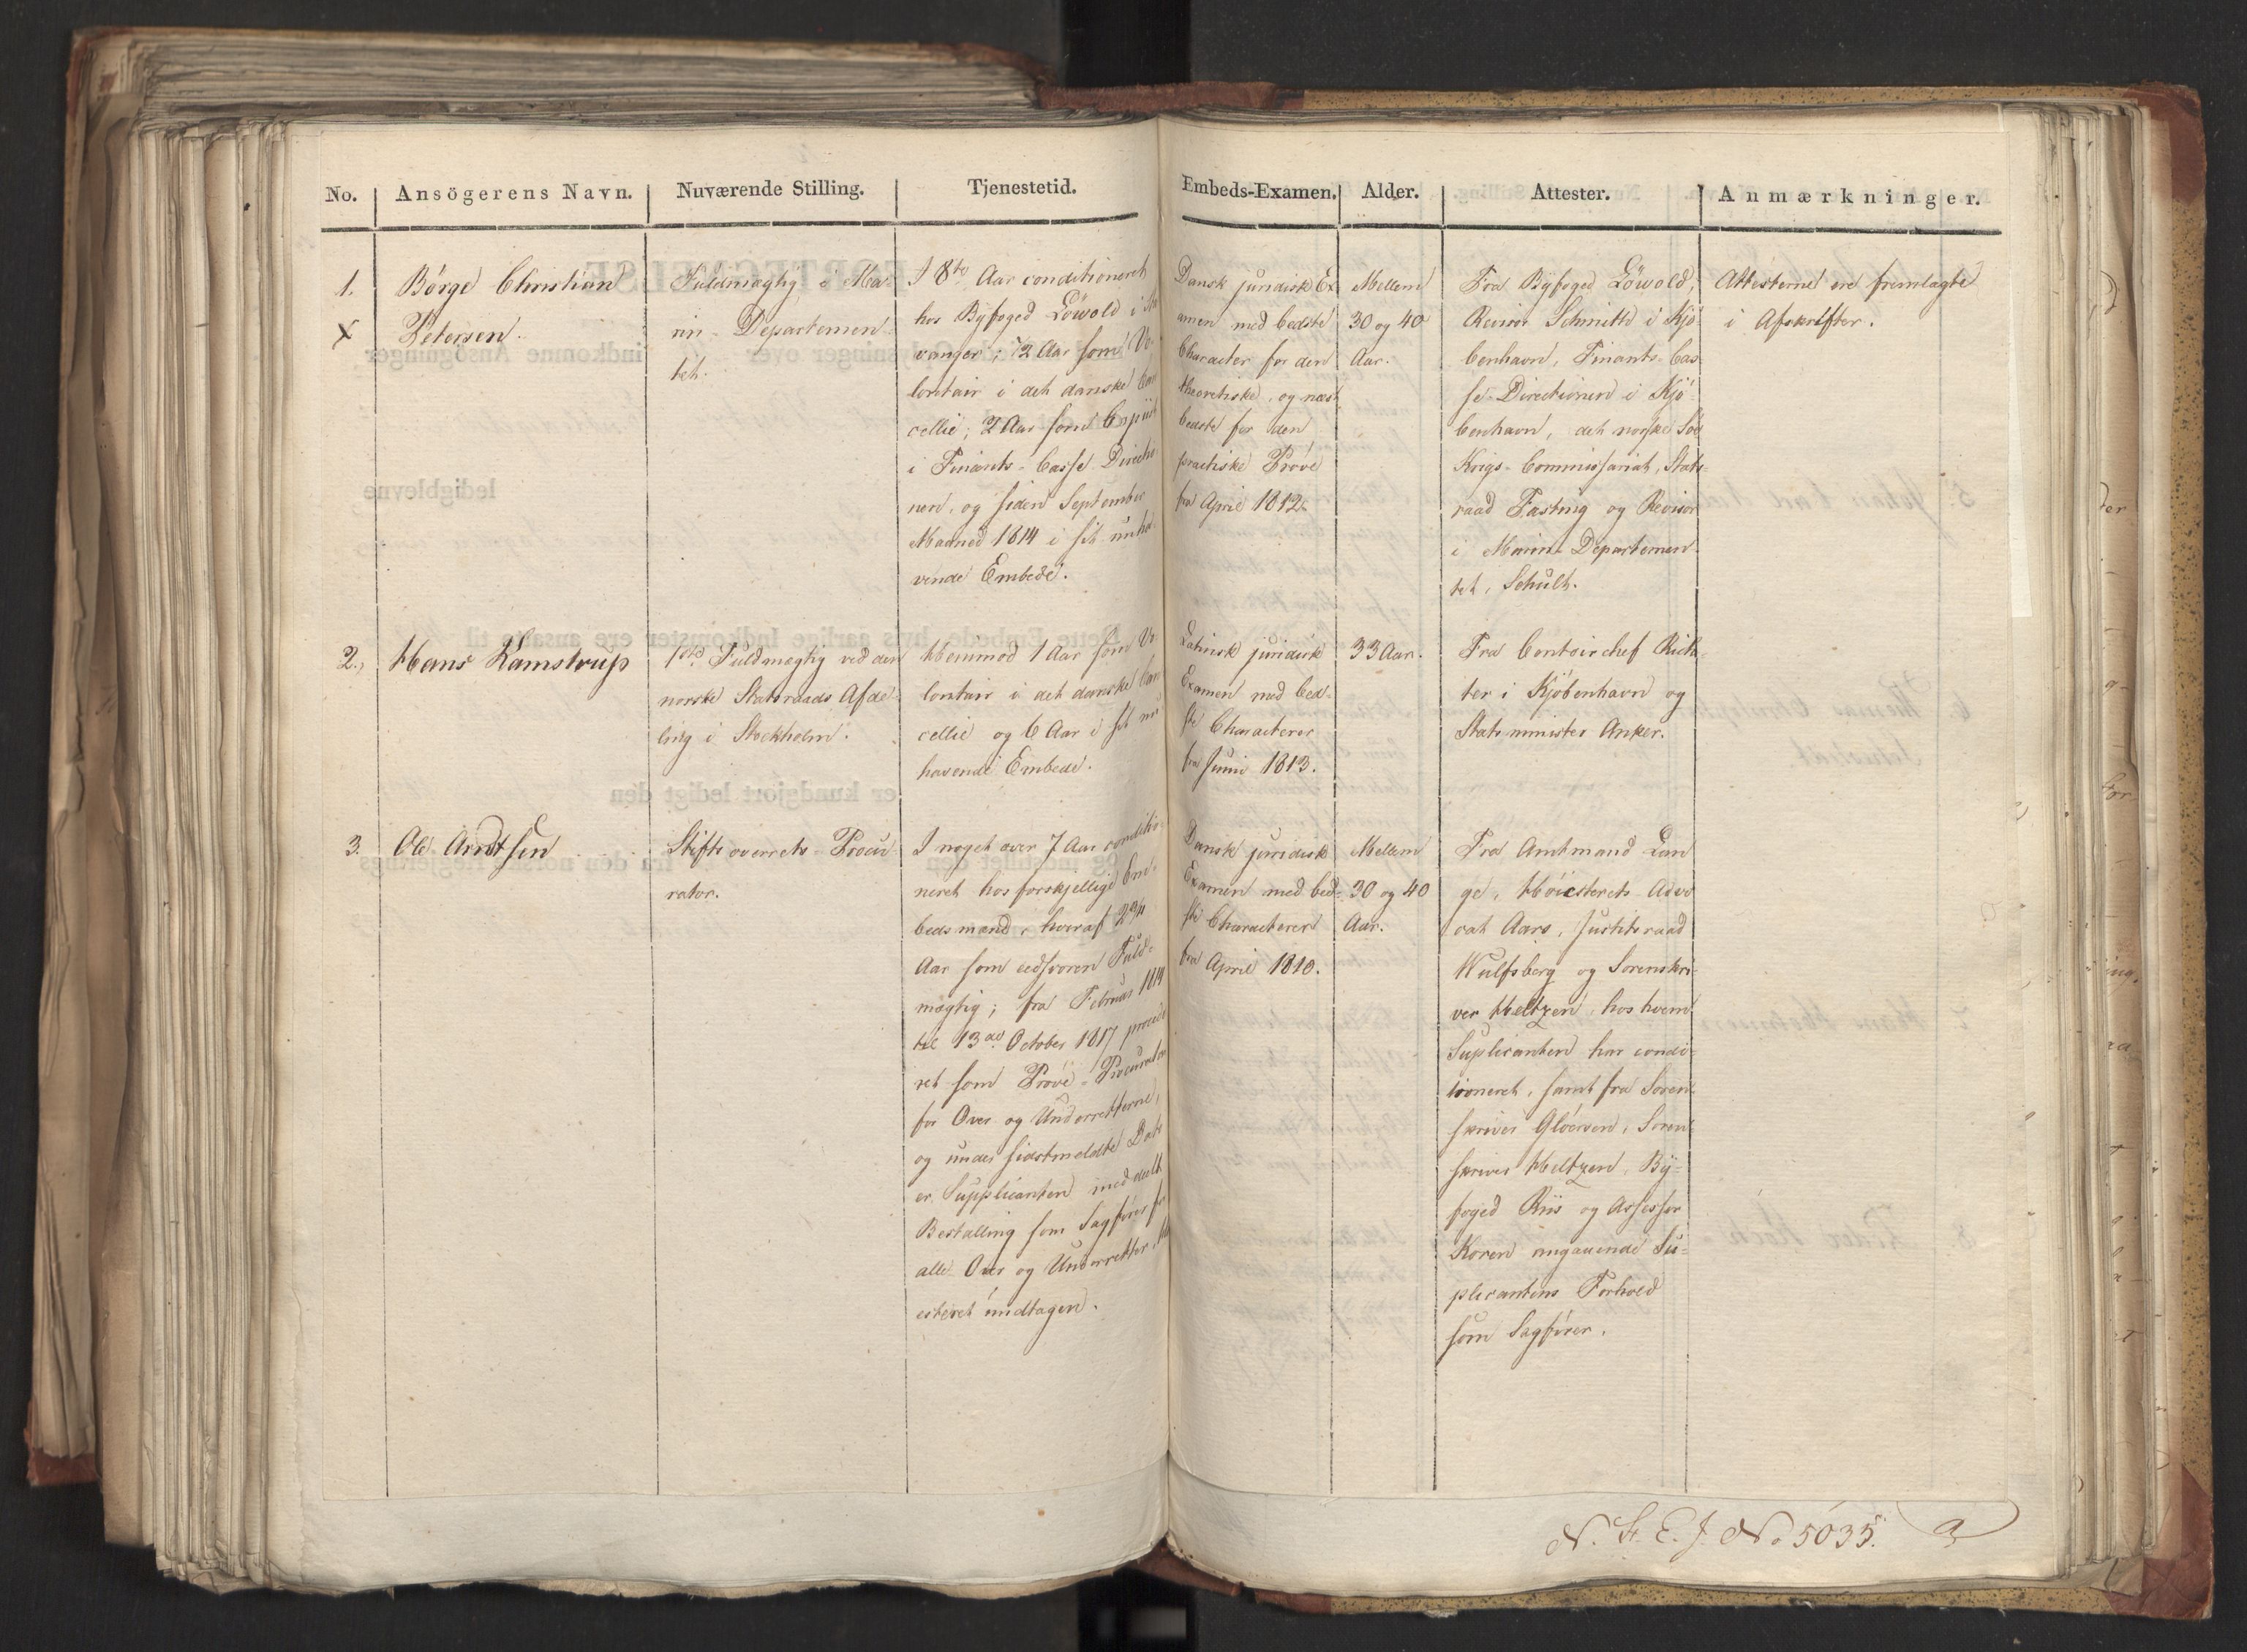 No. Ansögerens Navn. Nuværende Stilling. Tjenestetid. Embeds-Examen. Alder. Attester. Anmærkninger.
1.
Börge Christian
Petersen.
Fuldmægtig i Ma-
rin-Departemen-
tet.
I 8te Aar conditioneret
hos Byfoged Löwold i
vanger; 2 Aar som Vo-
lontair i det danske Can
cellie; 2 Aar som Copiist
i Finants-Casse-Directio-
nen, og siden September
Maaned 1814 i sit nuhæ-
vende Embede.
Dansk juridisk Ex
amen med bedste
Character for den
theoretiske, og næst
bedste for den
practiske Pröve
fra April 1812.
Mellem
30 og 40
Aar.
Fra Byfoged Löwold,
Revisor Schmitte i Kjö-
benhavn, Finants-Cas-
se-Directionen i Kjö-
benhavn, det norske Söe
Krigs-Commissariat, Stats-
raad Fasting og Revisor
i Marine-Departemen-
tet, Schult.
Attesterne ere fremlagte
i Afskrifter.
2.,
Hans Kamstrup
1ste Fuldmægtig ved den
norske Statsraads Afde-
ling i Stockholm.
Henimod 1 Aar som Vo-
lontair i det danske Can
cellie og 6 Aar i sit nu
havende Embede.
Latinsk juridisk
Examen med bed-
ste Characterer
fra Junii 1813.
33 Aar.
Fra Contoirchef Rich-
ter i Kjöbenhavn og
Statsminister Anker.
3.
Ole Arntsen
Stiftsoverrets-Procu
rator.
I noget over 7 Aar conditio-
neret hos forskjellige Em-
bedsmænd, hvoraf 2 3/4
Aar som eedsvoren Fuld-
mægtig; fra Februar 1814
til 13de October 1817 procede
ret som Pröve-Procurator
for Over og Underretterne,
og under sidstmeldte Dato
er Supplicanten meddeelt
Bestalling som Sagförer for
alle Over og Underretter,
esteret undtagen.
Dansk juridisk
Examen med bed-
ste Characterer
fra April 1810.
Mellem
30 og 40
Aar.
Fra Amtmand Lan
ge, Höiesterets-Advo
cat Aars, Justitsraad
Wulfsberg og Sorenskri-
ver Heltzen, hos hvem
Suplicanten har condi-
tioneret, samt fra Soren-
skriver Glöersen, Soren-
skriver Heltzen, By-
foged Riis og Assessor
Koren angaaende Su-
plicantens Forhold
som Sagförer.
N. St. E. J. No 5035. a